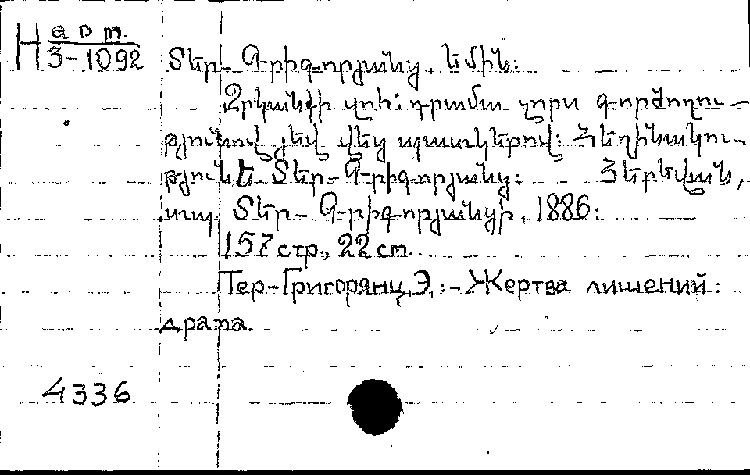 Н арт.
3-1092
Տեր-Գրիգորյանց, Եմին:
Զրկանքի զոհ: դրամա չորս գործողու-
թյունով յեվ վեց պատկերով: Հեղինակու-
թյուն Ե. Տեր-Գրիգորյանց: Յերեվան,
տպ. Տեր-Գրիգորյանցի, 1886:
157 стр., 22 cm.
Тер-Григорянц, Э.:- Жертва лишений:
драма.
4336